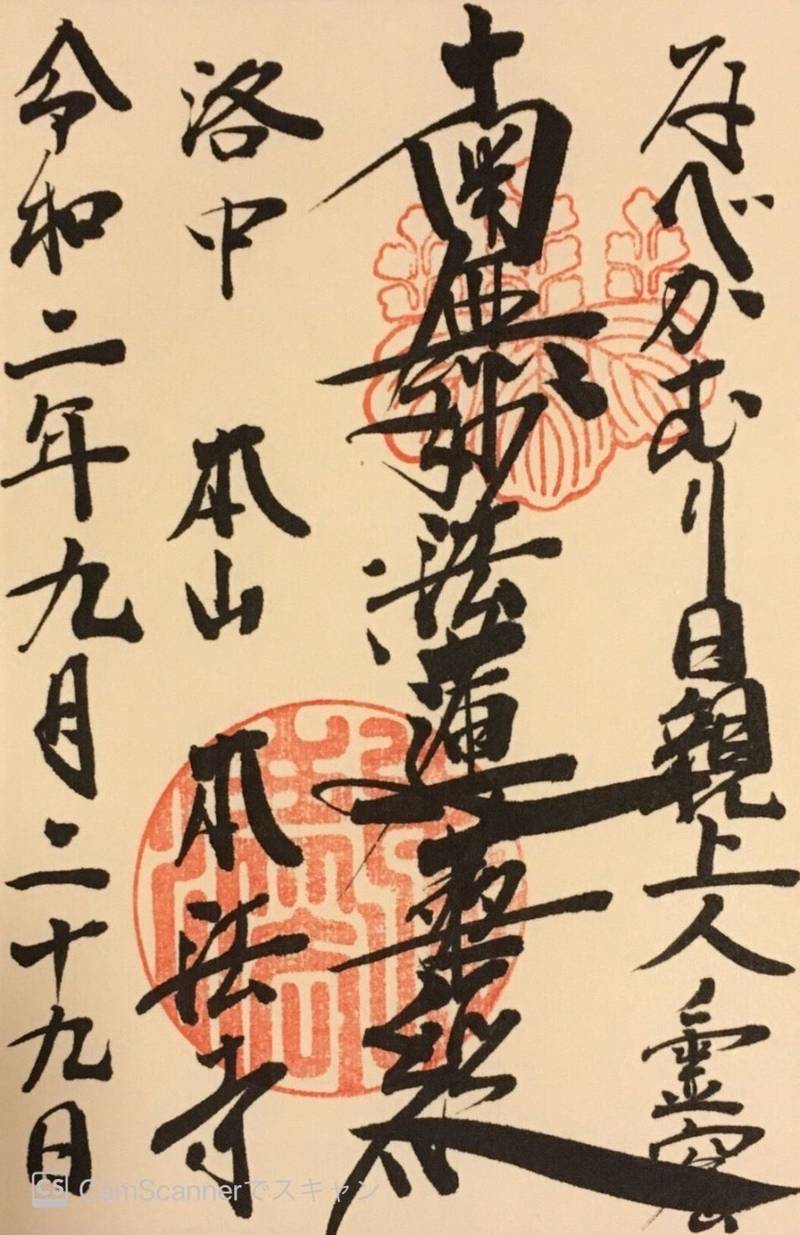 なべかむり日親上人霊窟
南無妙法蓮華経
洛中 本山 本法寺
令和二年九月二十九日
CS CamScannerでスキャン